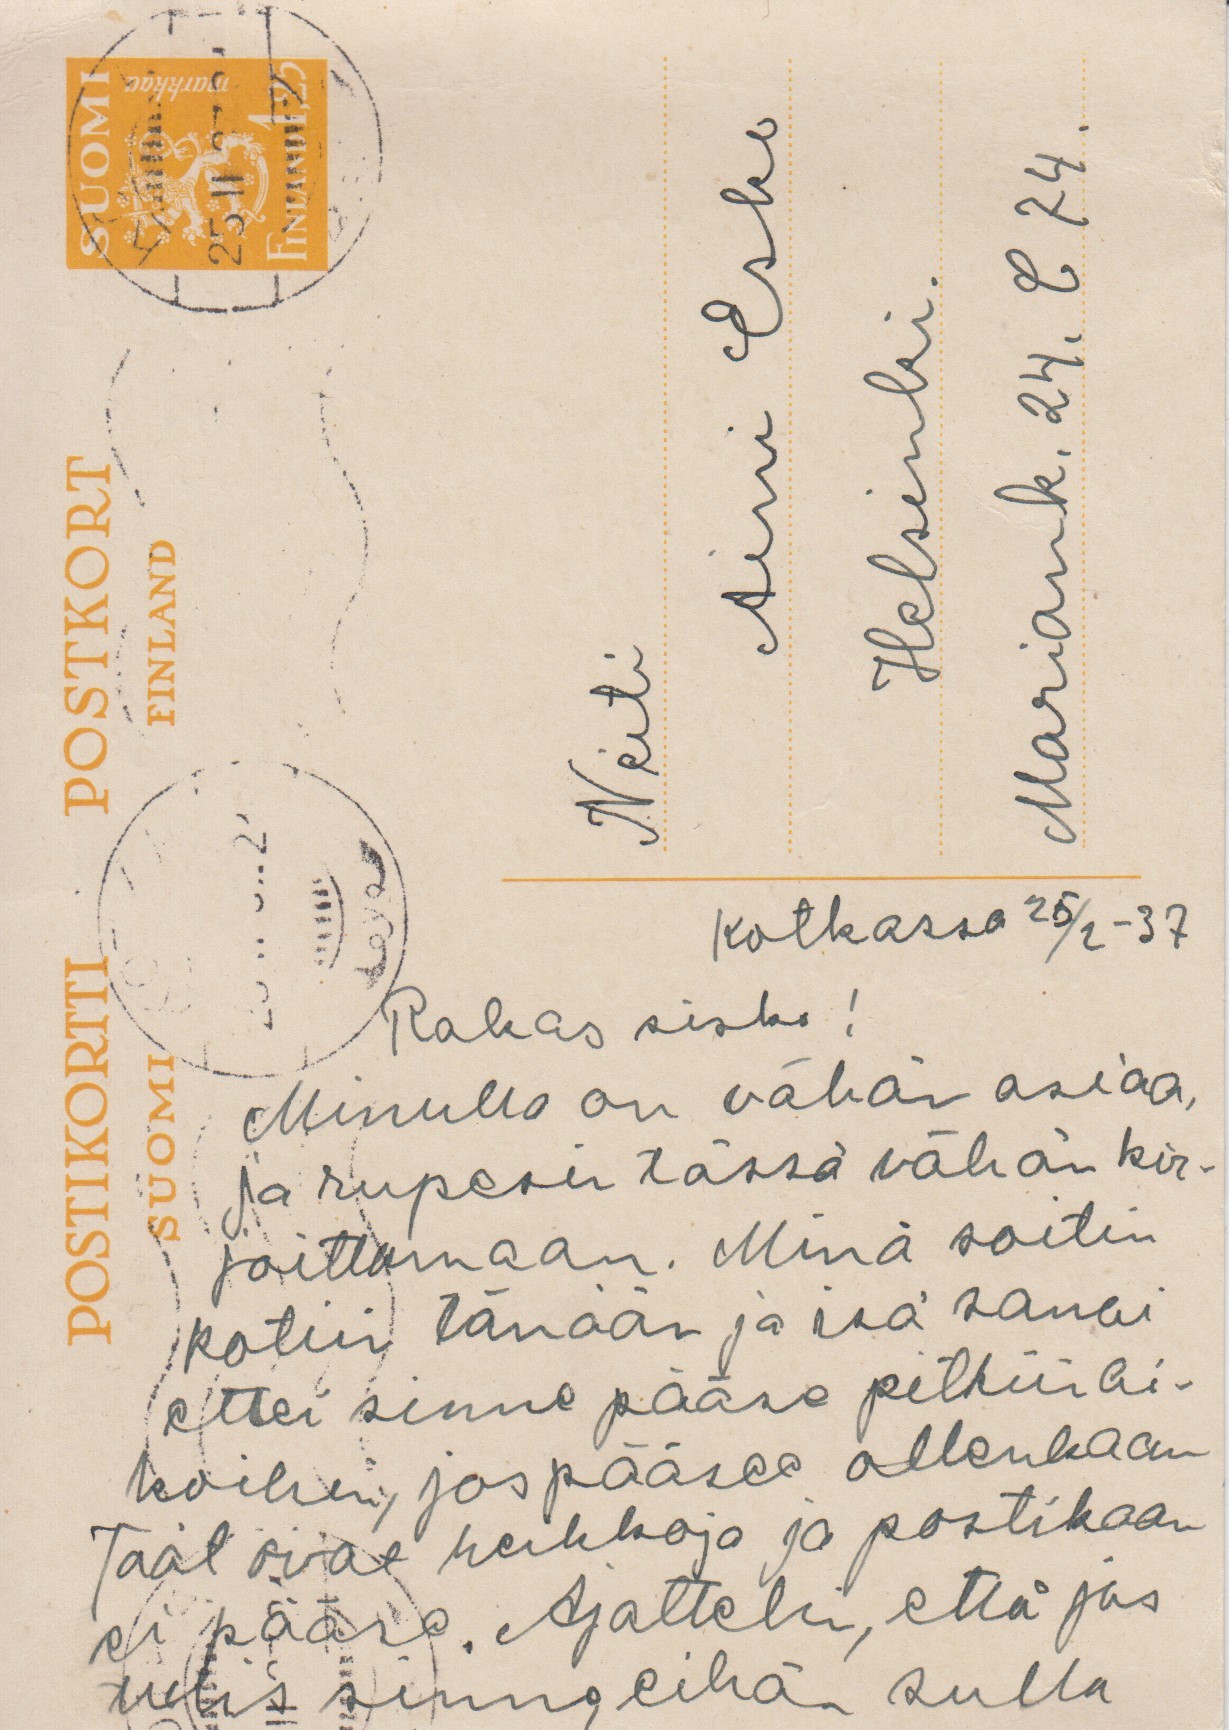 SUOMI
markkaa
1,25
FINLAND
25 II 37
POSTIKORTTI POSTKORT
SUOMI FINLAND
Neiti
Aini Esko
Helsinki.
Mariank. 24. C 74.
Kotkassa 25/2-37
Rakas sisko!
Minulla on vähän asiaa,
ja rupesin tässä vähän kir-
joittamaan. Minä soitin
kotiin tänään ja isä sanoi
ettei sinne pääse pitkiin ai-
koihin, jos pääsee ollenkaan
Tääl ovat heikkoja ja postikaan
ei pääse. Ajattelin, että jos
tulis sinne, eihän sulla